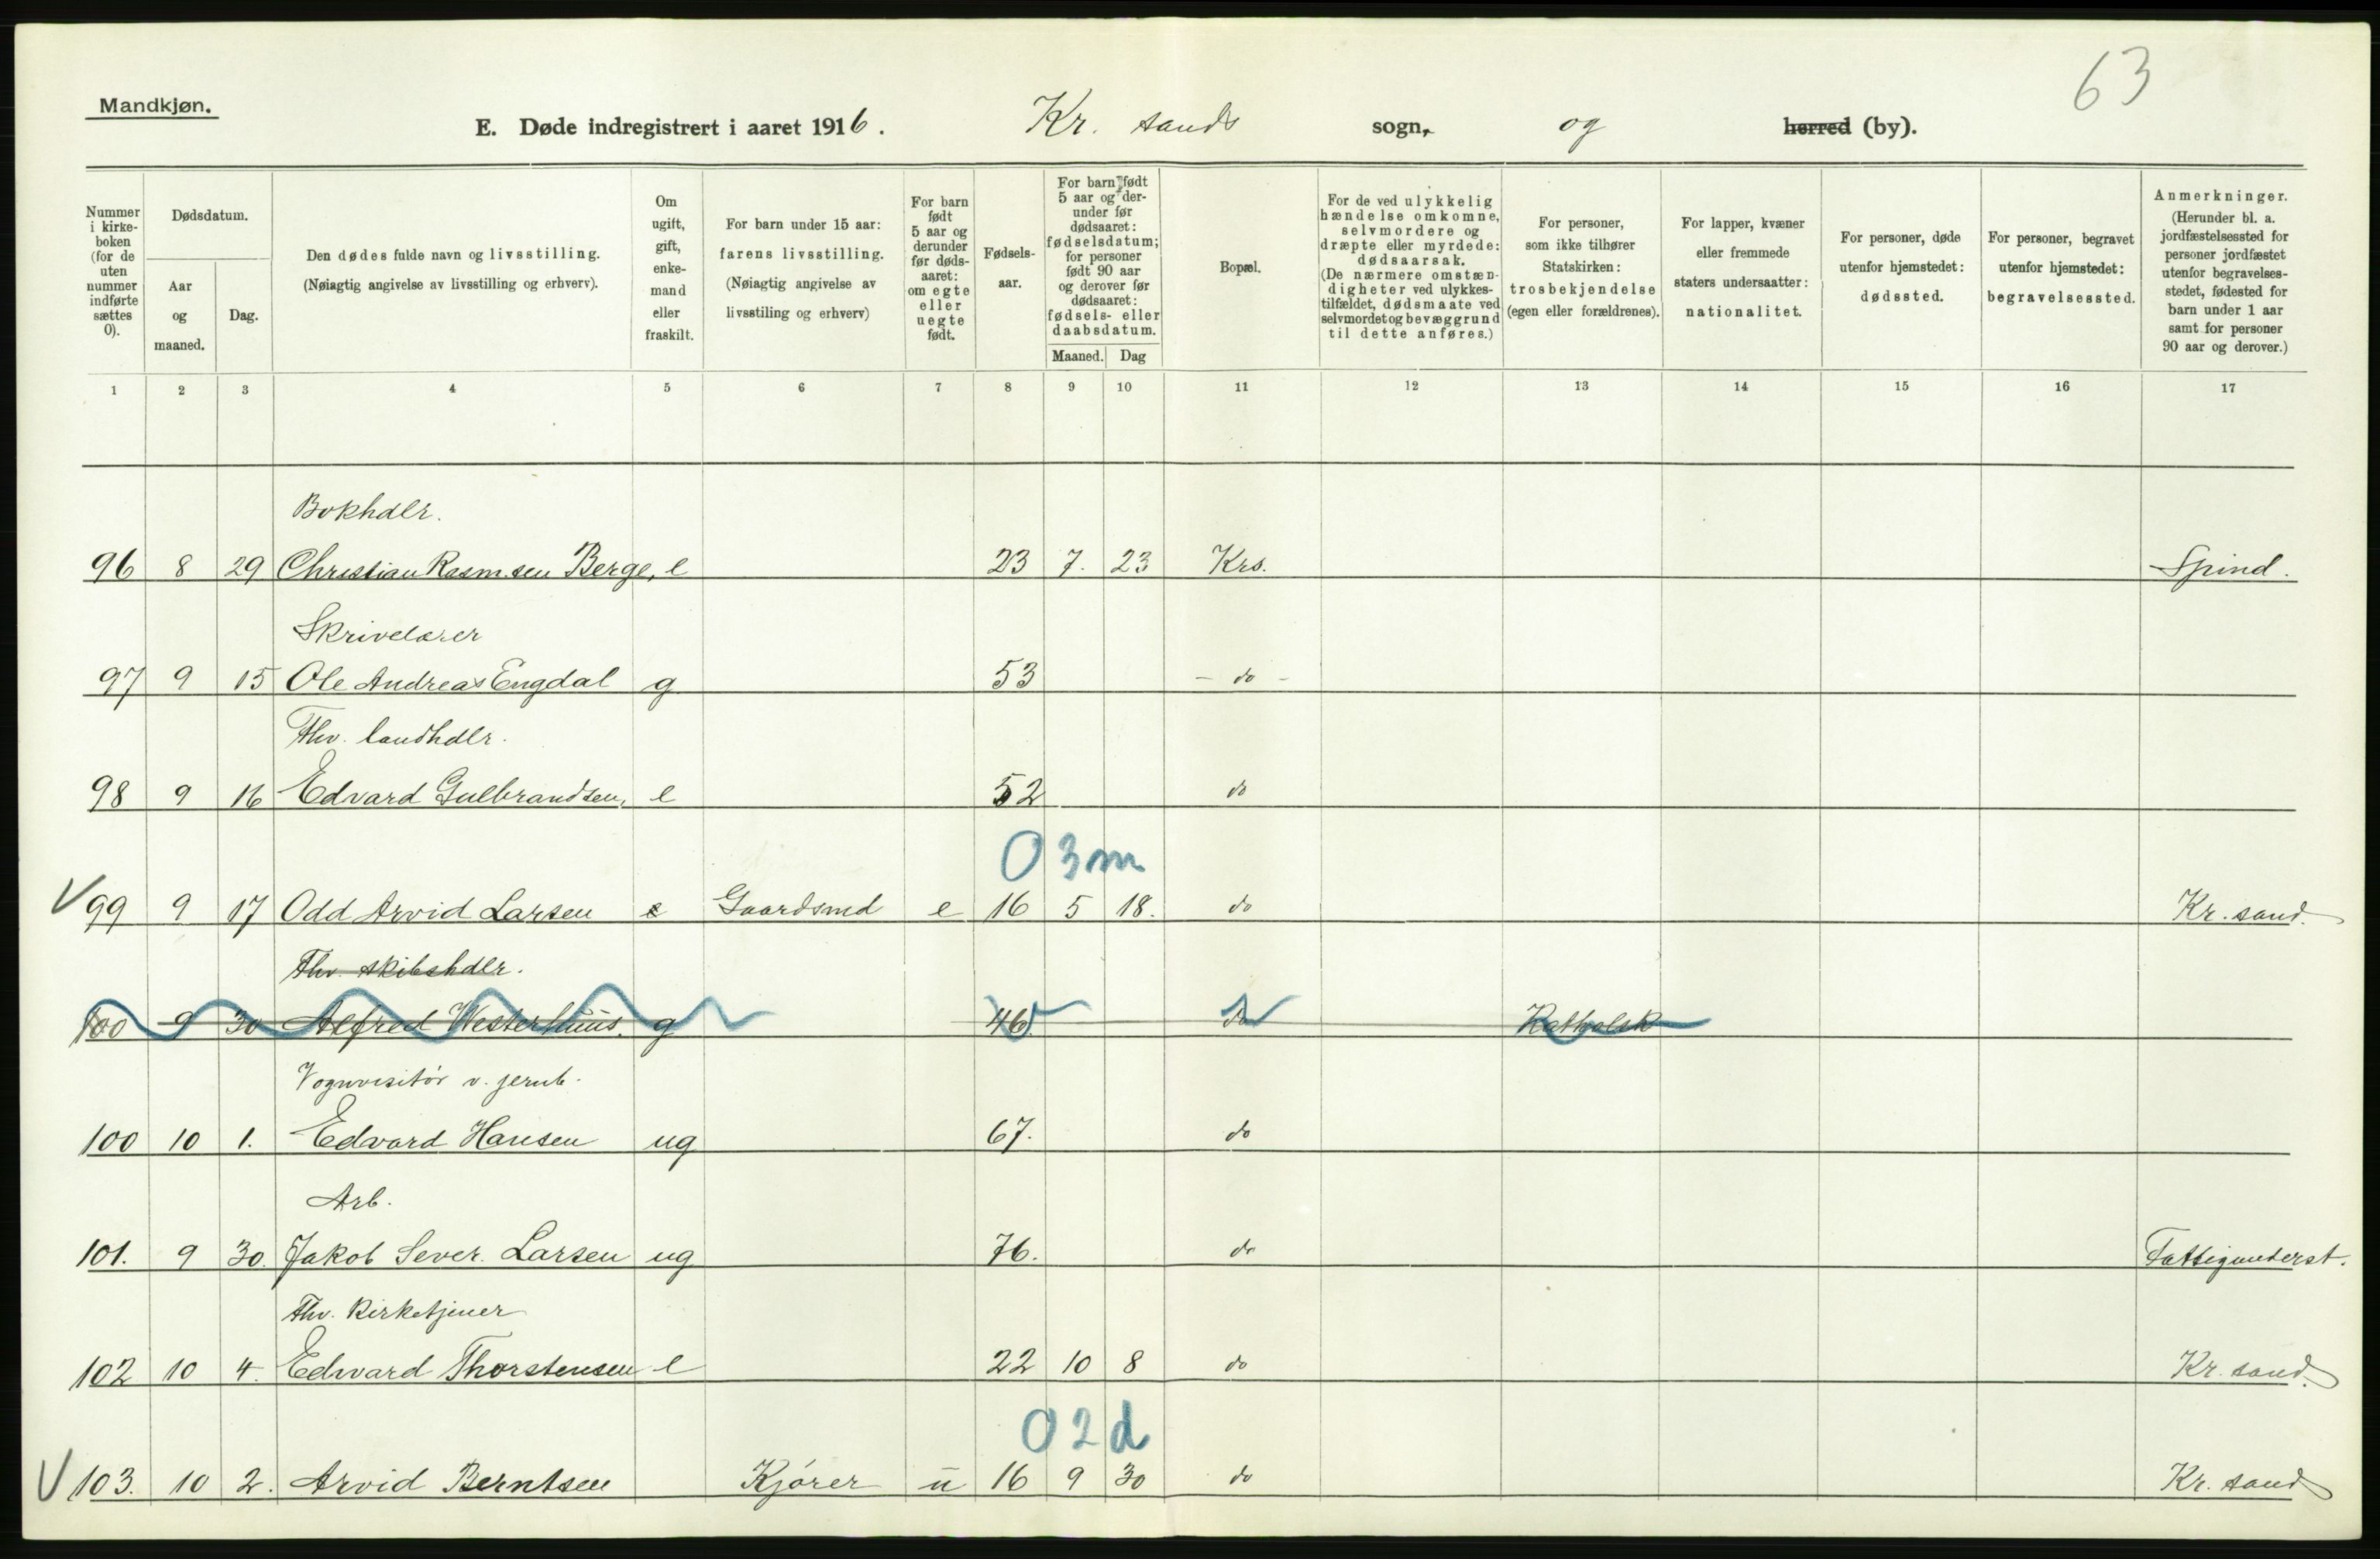 63
Mandkjøn.
E. Døde indregistrert i aaret 1916. Kr. sands sogn, og herred (by).
Nummer i kirkeboken (for de uten nummer indførte sættes 0).
Dødsdatum.
Aar og maaned.
Dag.
Den dødes fulde navn og livsstilling. (Nøiagtig angivelse av livsstilling og erhverv).
Om ugift, gift, enkemand eller fraskilt.
For barn under 15 aar: farens livsstilling. (Nøiagtig angivelse av livsstiling og erhverv)
For barn født 5 aar og derunder før dødsaaret: om egte eller uegte født.
Fødselsaar.
For barn født 5 aar og derunder før dødsaaret: fødselsdatum; for personer født 90 aar og derover før dødsaaret: fødsels- eller daabsdatum.
Maaned. Dag
Bopæl.
For de ved ulykkelig hændelse omkomne, selvmordere og dræpte eller myrdede: dødsaarsak. (De nærmere omstændigheter ved ulykkestilfældet, dødsmaate ved selvmordet og bevæggrund til dette anføres.)
For personer, som ikke tilhører Statskirken: trosbekjendelse (egen eller forældrenes).
For lapper, kvæner eller fremmede staters undersaatter: nationalitet.
For personer, døde utenfor hjemstedet: dødssted.
For personer, begravet utenfor hjemstedet: begravelsessted.
Anmerkninger. (Herunder bl. a. jordfæstelsessted for personer jordfæstet utenfor begravelsesstedet, fødested for barn under 1 aar samt for personer 90 aar og derover.)
1 2 3 4 5 6 7 8 9 10 11 12 13 14 15 16 17
Bokhdlr.
96 8 29 Christian Rasmsen Berge, e 23 7. 23 Krs. Spind.
Skrivelærer
97 9 15 Ole Andreas Engdal g 53 - do -
Fhv. landhdlr.
98 9 16 Edvard Gulbrandsen, e 52 do
0 3m
V 99 9 17 Odd Arvid Larsen e Gaardsmd e 16 5 18. do Kr. sand.
Fhv. skibshdlr.
100 9 30 Alfred Westerhuus. g 46. do Katholsk
Vognvisitör v. jernb.
100 10 1. Edvard Hansen ug 67. do
Arb.
101. 9 30. Jakob Sever. Larsen ug 76. do Fattigunderst.
Fhv. Kirketjener
102 10 4. Edvard Thorstensen e 22 10 8 do Kr. sand.
0 2 d
V 103. 10 2. Arvid Berntsen Kjörer u 16 9 30 do Kr. sand